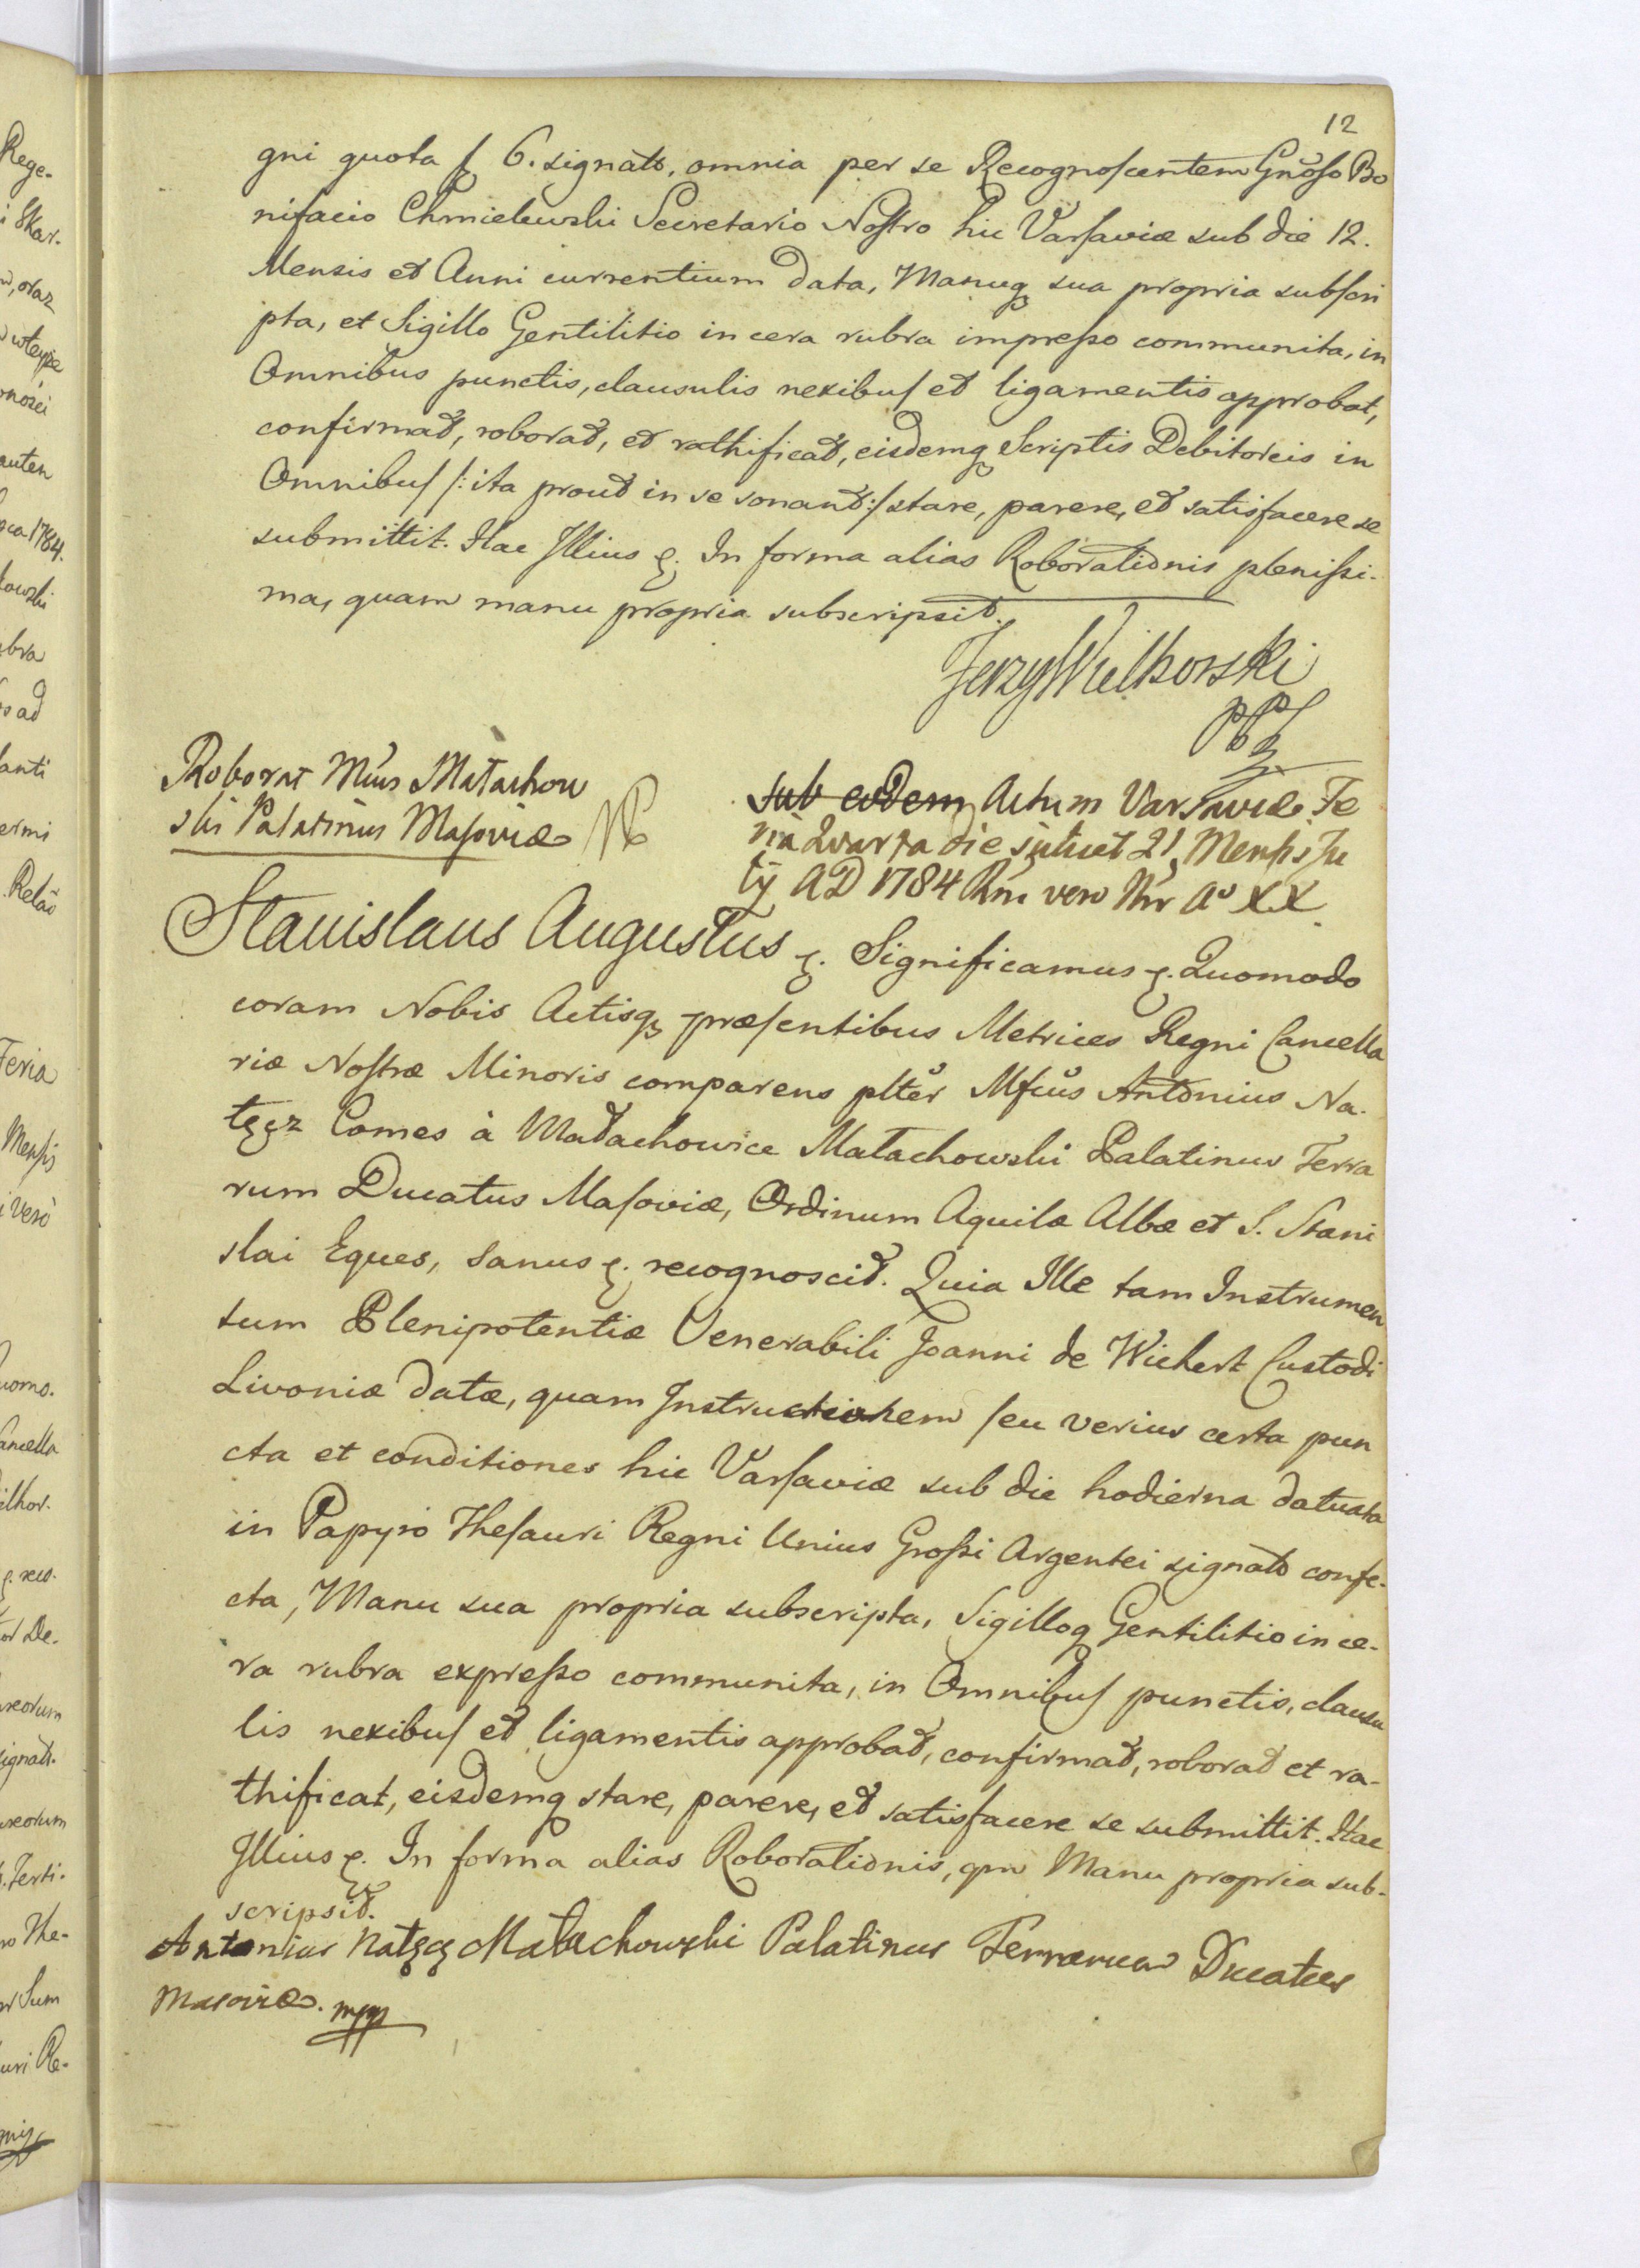 12
gni quota f 6. signato, omnia per se Recognoscentem Gnoso Bo
nifacio Chmielewski Secretario Nostro hic Varsaviæ sub die 12.
Mensis et Anni currentium data, Manuq sua propria subscri
pta, et Sigillo Gentilitio in cera rubra impresso communita, in
Omnibus punctis, clausulis nexibus et ligamentis approbat,
confirmat, roborat, et rathificat, eisdemq Scriptis Debitoreis in
Omnibus /: ita prout in se sonant :/ stare, parere, et satisfacere se
submittit. Hac Illius &. In forma alias Roborationis plenissi-
ma, quam manu propria subscripsit.
Jerzy Wielhorski
Roborat Mcus Małachow
ski Palatinus Masoviæ
sub eodem Actum Varsaviæ Fe
ria Quarta die scilicet 21 Mensis Ju
lij AD 1784 Rni vero Nri Ao XX
Stanislaus Augustus &. Significamus &. Quomodo
coram Nobis Actisq præsentibus Metrices Regni Cancella
riæ Nostræ Minoris comparens plter Mfcus Antonius Na-
łęcz Comes à Małachowice Małachowski Palatinus Terra
rum Ducatus Masoviæ, Ordinum Aquilæ Albæ et S. Stani
slai Eques, sanus &. recognoscit. Quia Ille tam Instrumen
tum Plenipotentiæ Venerabili Joanni de Wichert Custodi
Livoniæ datæ, quam Instructionem seu verius certa pun
cta et conditiones hic Varsaviæ sub die hodierna datuata
in Papyro Thesauri Regni Unius Grossi Argentei signato confe-
cta, Manu sua propria subscripta, Sigilloq Gentilitio in ce-
ra rubra expresso communita, in Omnibus punctis, clausu
lis nexibus et ligamentis approbat, confirmat, roborat et ra-
thificat, eisdemq stare, parere, et satisfacere se submittit. Hac
Illius &. In forma alias Roborationis, qm Manu propria sub-
scripsit.
Antonius Nałęcz Małachowski Palatinus Terrarum Ducatus
Masoviæ. mpp